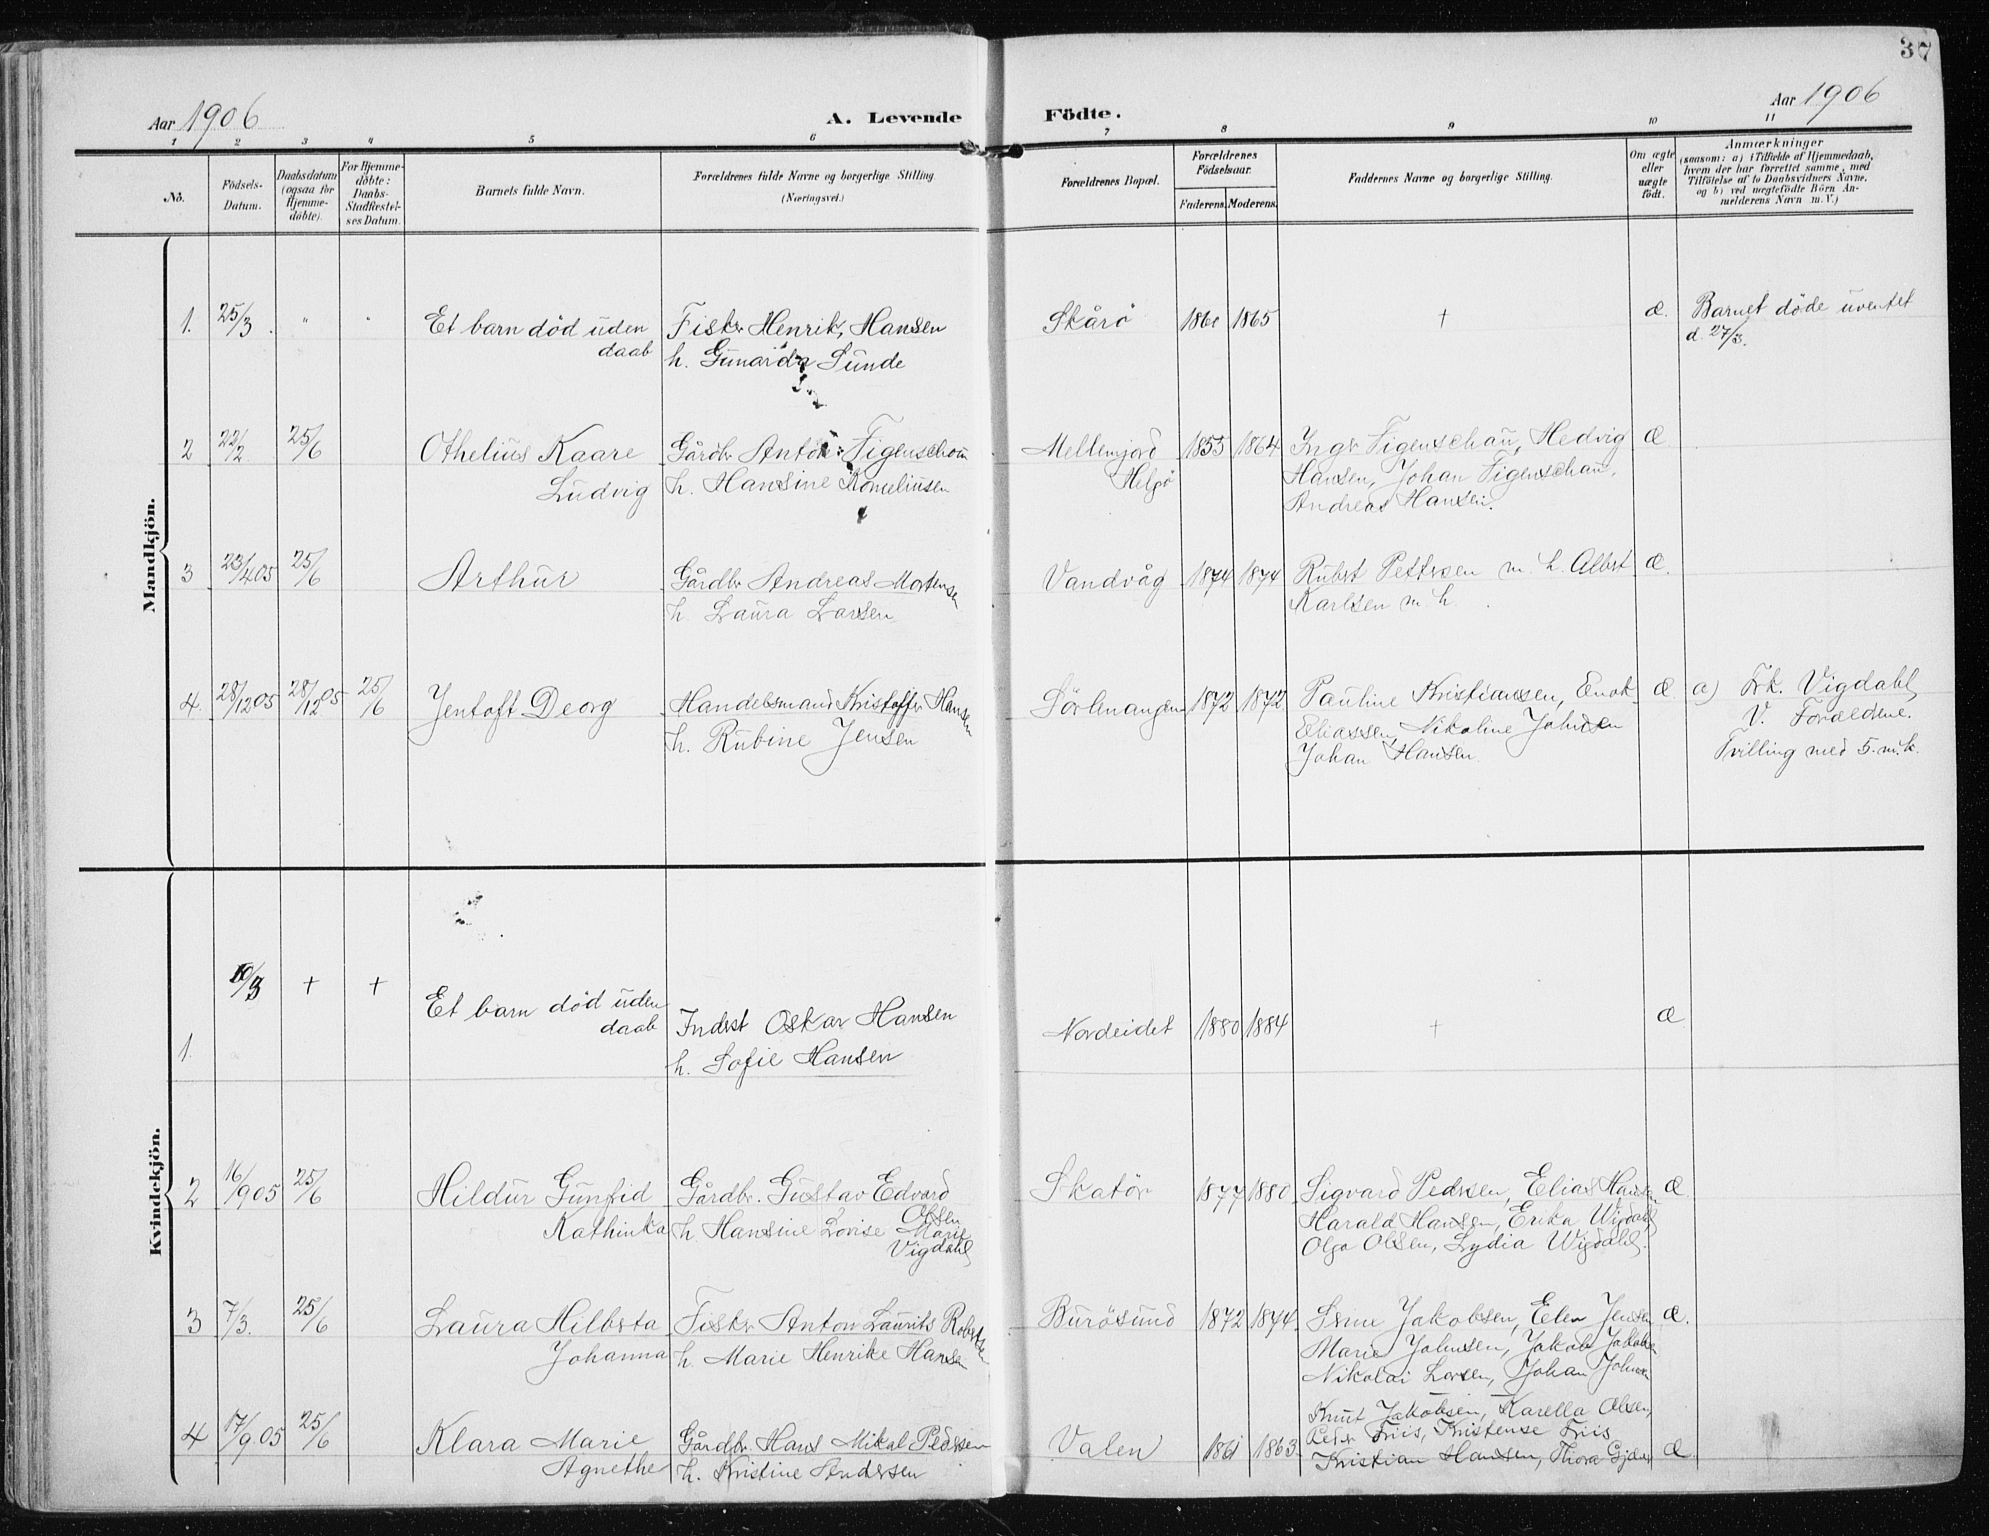 37
Aar 1906
A. Levende Födte.
Aar 1906
1 2 3 4 5 6 7 8 9 10 11
No.
Födsels-
Datum.
Daabsdatum
(ogsaa for
Hjemme-
döbte).
For Hjemme-
döbte:
Daabs-
Stadfæstel-
ses Datum.
Barnets fulde Navn.
Forældrenes fulde Navne og borgerlige Stilling.
(Næringsvei.)
Forældrenes Bopæl.
Forældrenes
Födselsaar.
Faderens. Moderens.
Faddernes Navne og borgerlige Stilling.
Om ægte
eller
uægte
födt.
Anmærkninger
(saasom: a) i Tilfælde af Hjemmedaab,
hvem der har forrettet samme, med
Tilföielse af to Daabsvidners Navne,
og b) ved uægtefödte Börn An-
melderens Navn m. V.)
Mandkjön.
1. 25/3 . " " Et barn död uden Fisker Henrik Hansen Skårö 1865 + æ. Barnet döde uventet
daab h. Gunarda Sunde d. 27/3.
2 22/2 25/6 Othelius Kaare Gårdbr Anton Figenschou Mellemjord 1855 1864 Ingr Figenschau, Hedvig æ
Ludvig h. Hansine Korneliusen Helgö Hansen, Johan Figenschau,
Andreas Hansen.
3 23/4 05 25/6 Arthur Gårdbr Andreas Mortensen Vandvåg 1874 1874 Robert Pettersen m. h. Albert æ.
h. Laura Larsen Karlsen m. h.
4. 28/12 05 28/12 05 25/6 Jentoft Georg Handelsmand Kristoffer Hansen Sörlenangen 1872 1872 Pauline Kristiansen, Enok æ a) Frk. Vigdahl
h. Rubine Jensen Eliassen, Nikoline Johnsen V. Forældrene.
Johan Hansen. Tvilling med 5. m. k.
Kvindekjön.
1. 10/3 + + Et barn död uden Inderst Oskar Hansen Nordeidet 1880 1884 + æ
daab h. Sofie Hansen
2 16/9 05 25/6 Hildur Gunfrid Gårdbr. Gustav Edvard Olsen Skatör 1877 1880 Sigvard Pedersen, Elias Hansen æ.
Kathinka h. Hansine Lovise Marie Harald Hansen, Erika Wigdahl
Vigdahl Olga Olsen, Lydia Wigdahl.
3 7/3. 25/6 Laura Hilberta Fisker Anton Laurits Robertsen Burösund 1872 1874 Serine Jakobsen, Elen Jensen æ.
Johanna h. Marie Henrike Hansen Marie Johnsen, Jakob Jakobsen
Nikolai Larsen, Johan Johnsen
4 17/9 05 25/6 Klara Marie Gårdbr. Hans Mikal Pedersen Valen 1861 1863 Knut Jakobsen, Karella Olsen,
Agnethe h. Kristine Andersen Peder Friis, Kristense Friis
Kristian Hansen, Thora Gjæver æ.